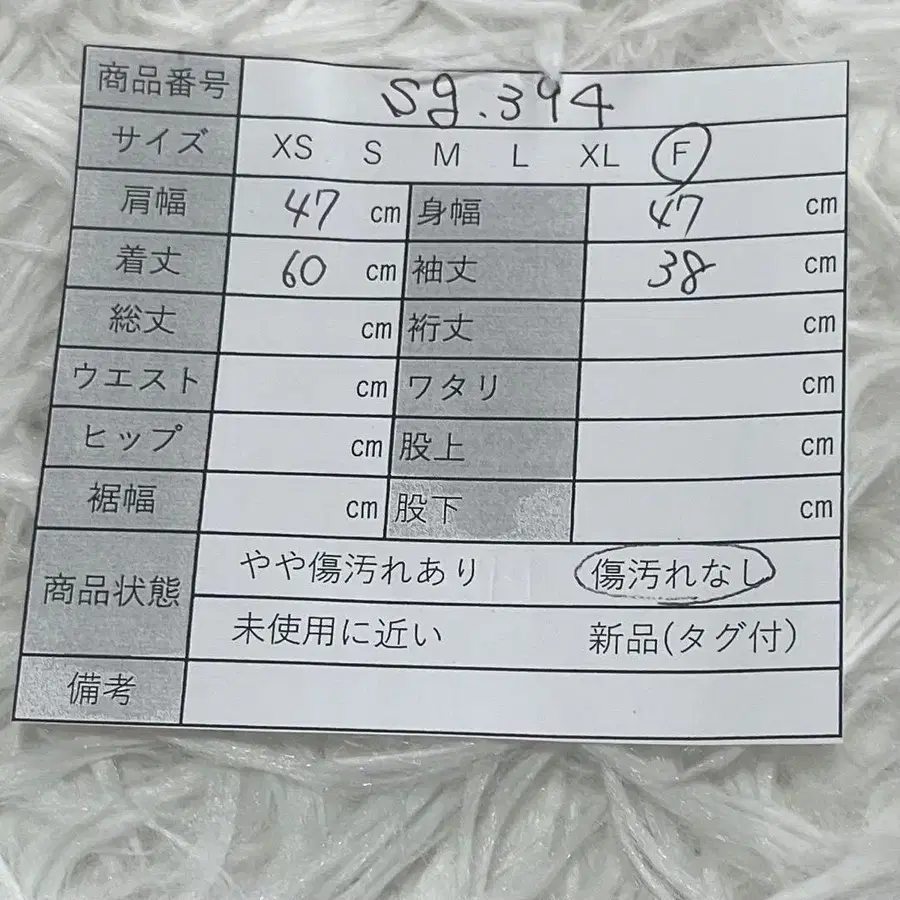 商品番号 sg.394
サイズ XS S M L XL F
肩幅 47 cm 身幅 47 cm
着丈 60 cm 袖丈 38 cm
総丈 cm 裄丈 cm
ウエスト cm ワタリ cm
ヒップ cm 股上 cm
裾幅 cm 股下 cm
商品状態 やや傷汚れあり 傷汚れなし
未使用に近い 新品(タグ付)
備考